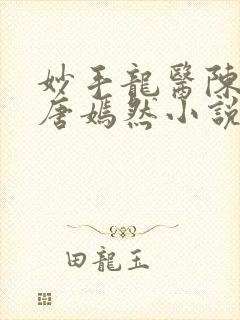 妙手龍醫陳
唐嫣然小説
田龍玉